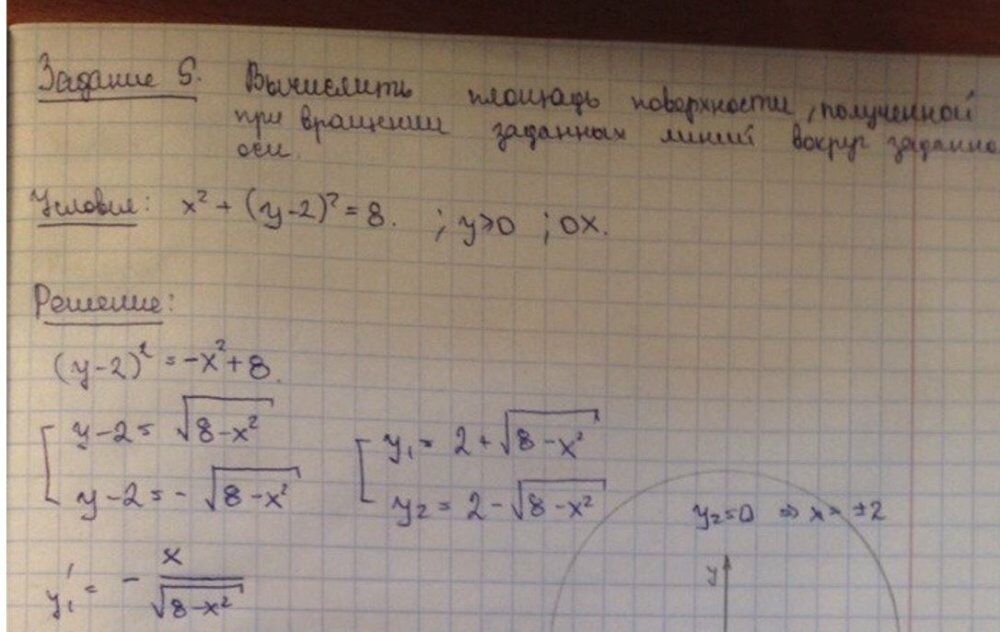 Задание 5. Вычислить площадь поверхности, полученной
при вращении заданных линий вокруг заданно
оси.
Условия: x² + (y-2)² = 8. ; y>0 ; OX.
Решение:
(y-2)² = -x² + 8.
[ y-2 = √(8-x²) [ y₁ = 2 + √(8-x²)
y-2 = -√(8-x²) y₂ = 2 - √(8-x²) y₂=0 ⇒ x = ±2
y
y₁' = - x/√(8-x²)